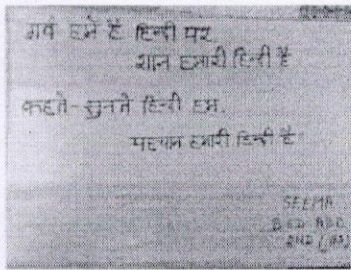 गर्व हमें है हिन्दी पर
शान हमारी हिन्दी है
कहते-सुनते हिन्दी हम.
पहचान हमारी हिन्दी है
SEEMA
BED
2ND